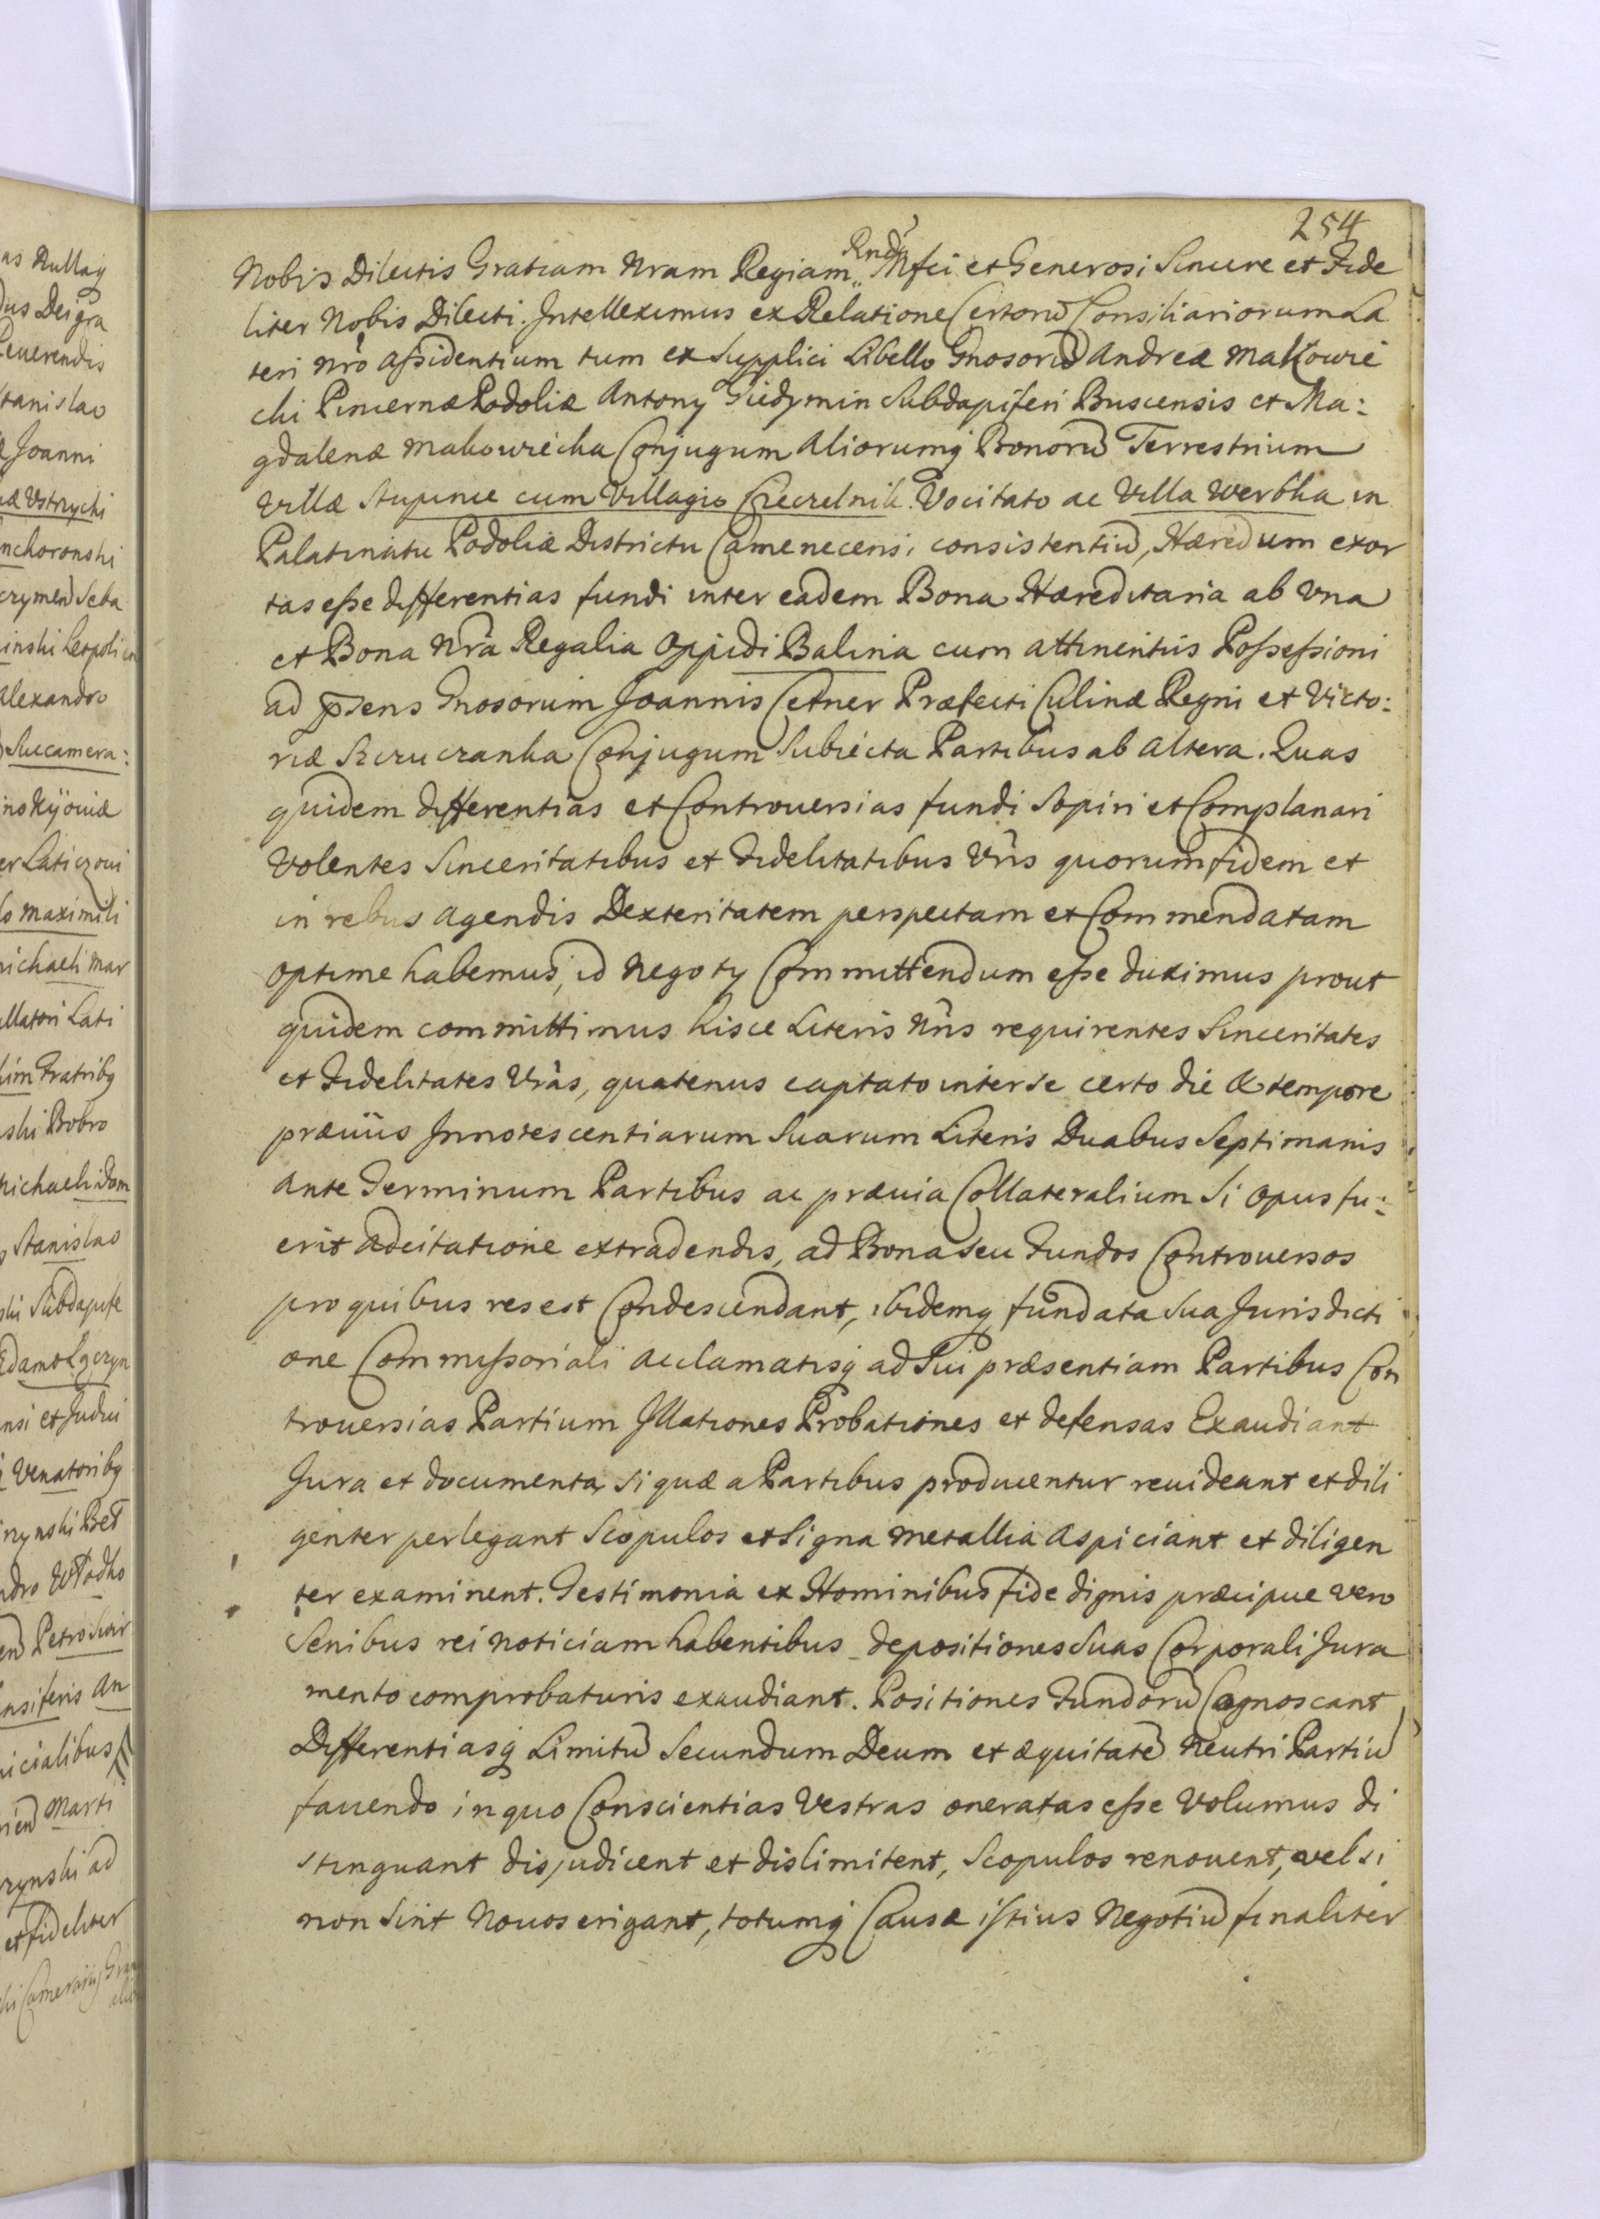 as Nullaq
dus Dei gra
Reuerendis
Stanislao
Joanni
Ustrzycki
Alexandro
Succamera:
Kyouiæ
maximili
michaeli mar
Lati
Fratribq
Bobro
michaeli Dom
Stanislao
Subdapife
et Judici
Venatoribq
Petro
An
Marti
ad
et fideliter
254
Rndi
Nobis Dilectis Gratiam Nram Regiam,, Mfci et Generosi Sincere et Fide
liter Nobis Dilecti. Intelleximus ex Relatione Certorũ Consiliariorum La
teri nro Assidentium tum ex Supplici Libello Gnosorũ Andreæ Makowie
cki Pincernæ Podoliæ Antony Giedymin Subdapiferi Buscensis et Ma:
gdalenæ Makowiecka Conjugum Aliorumq Bonorũ Terrestrium
Villæ Stupince cum Villagio Czeczelnik Vocitato ac Villa Werbka in
Palatinatu Podoliæ Districtu Camenecensi consistentiũ, Hæredum exor
tas esse differentias fundi inter eadem Bona Hæreditaria ab Vna
et Bona Nra Regalia Oppidi Balina cum attinentiis Possessioni
ad psens Gnosorum Joannis Cetner Præfecti Culinæ Regni et Victo:
riæ Szczuczanka Conjugum Subiecta Partibus ab altera. Quas
quidem differentias et Controuersias fundi Sopiri et Complanari
Volentes Sinceritatibus et Fidelitatibus Vris quorum fidem et
in rebus agendis Dexteritatem perspectam et Commendatam
optime habemus, id Negoty Committendum esse duximus prout
quidem committimus hisce Literis Nris requirentes Sinceritates
et Fidelitates Vras, quatenus captato inter se certo die & tempore
præuiis Innotescentiarum Suarum Literis Duabus Septimanis
Ante Terminum Partibus ac præuia Collateralium Si opus fu:
erit Adcitatione extradendis, ad Bona seu Fundos Controuersos
pro quibus res est Condescendant, ibidemq fundata Sua Jurisdicti
one Commissoriali acclamatisq ad Sui præsentiam Partibus Con
trouersias Partium Illationes Probationes et defensas Exaudiant
Jura et documenta si quæ a Partibus producentur reuideant et dili
genter perlegant Scopulos et Signa metallia Aspiciant et diligen
ter examinent. Testimonia ex Hominibus fide dignis præcipue vero
Senibus rei noticiam habentibus depositiones Suas Corporali Jura
mento comprobaturis exaudiant. Positiones Fundorũ Cognoscant
Differentiasq Limitũ Secundum Deum et æquitatẽ Neutri Partiũ
fauendo in quo Conscientias Vestras oneratas esse Volumus di
stinguant disjudicent et dislimitent, Scopulos renouent, vel si
non Sint Nouos erigant, totumq Causæ istius Negotiũ finaliter